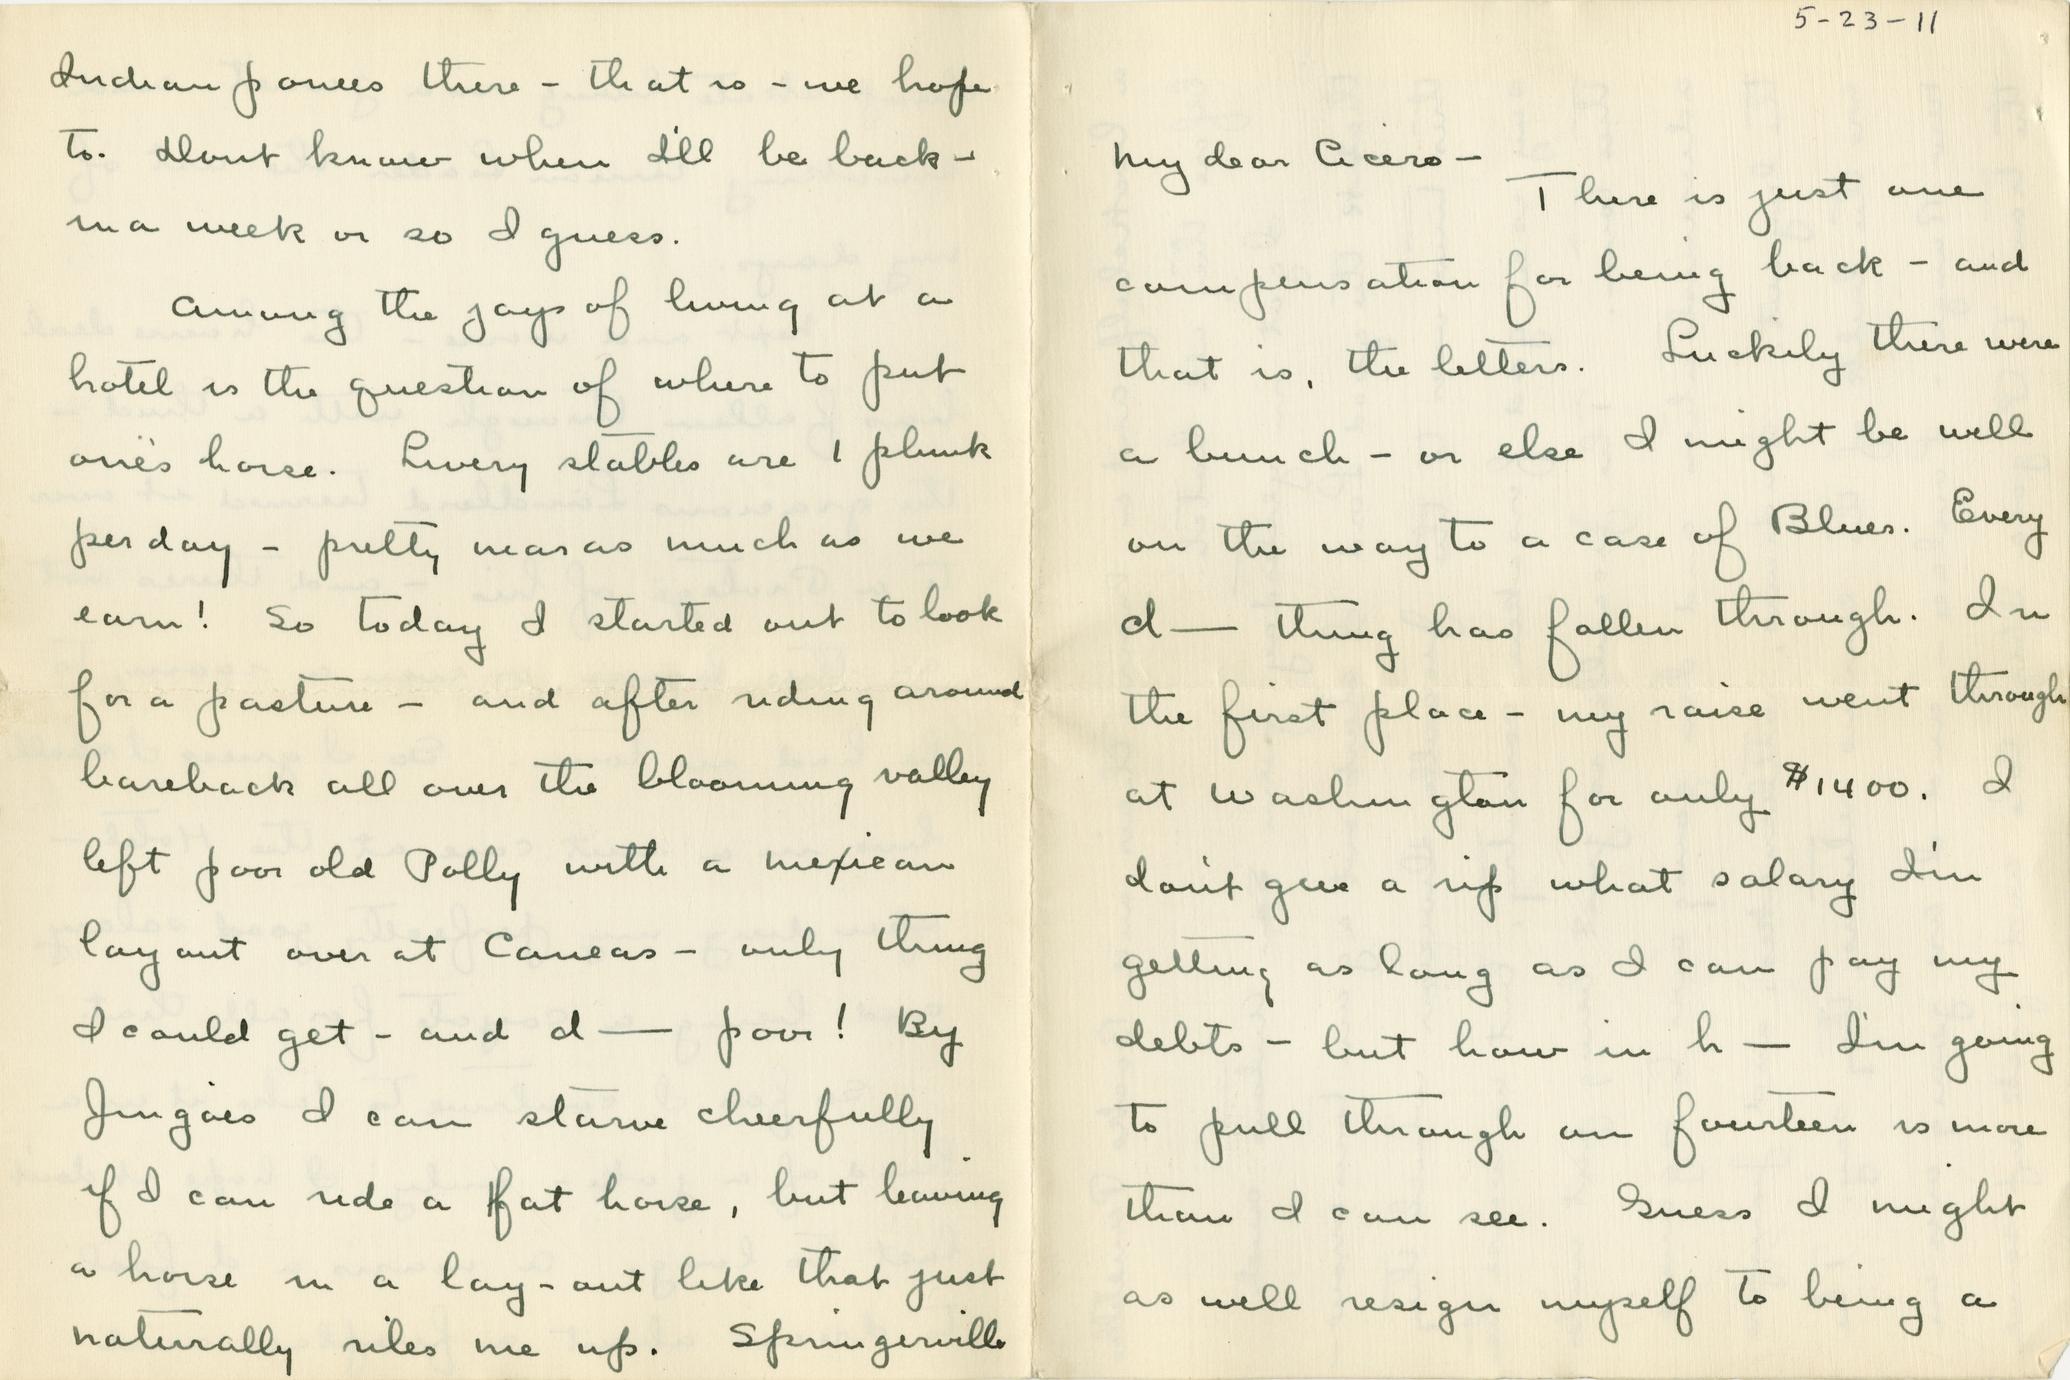 Indian ponies there - that is - we hope
to. Dont know when I'll be back -
in a week or so I guess.
Among the joys of living at a
hotel is the question of where to put
one's horse. Livery stables are 1 plunk
per day - pretty near as much as we
earn! So today I started out to look
for a pasture - and after riding around
bareback all over the blooming valley
left poor old Polly with a mexican
layout over at Caneas - only thing
I could get - and d— poor! By
Jingoes I can starve cheerfully
if I can ride a fat horse, but leaving
a horse in a lay-out like that just
naturally riles me up. Springerville
5-23-11
My dear Cicero -
There is just one
compensation for being back - and
that is, the letters. Luckily there were
a bunch - or else I might be well
on the way to a case of Blues. Every
d— thing has fallen through. In
the first place - my raise went through
at Washington for only $1400. I
don't give a rip what salary I'm
getting as long as I can pay my
debts - but how in h— I'm going
to pull through on fourteen is more
than I can see. Guess I might
as well resign myself to being a